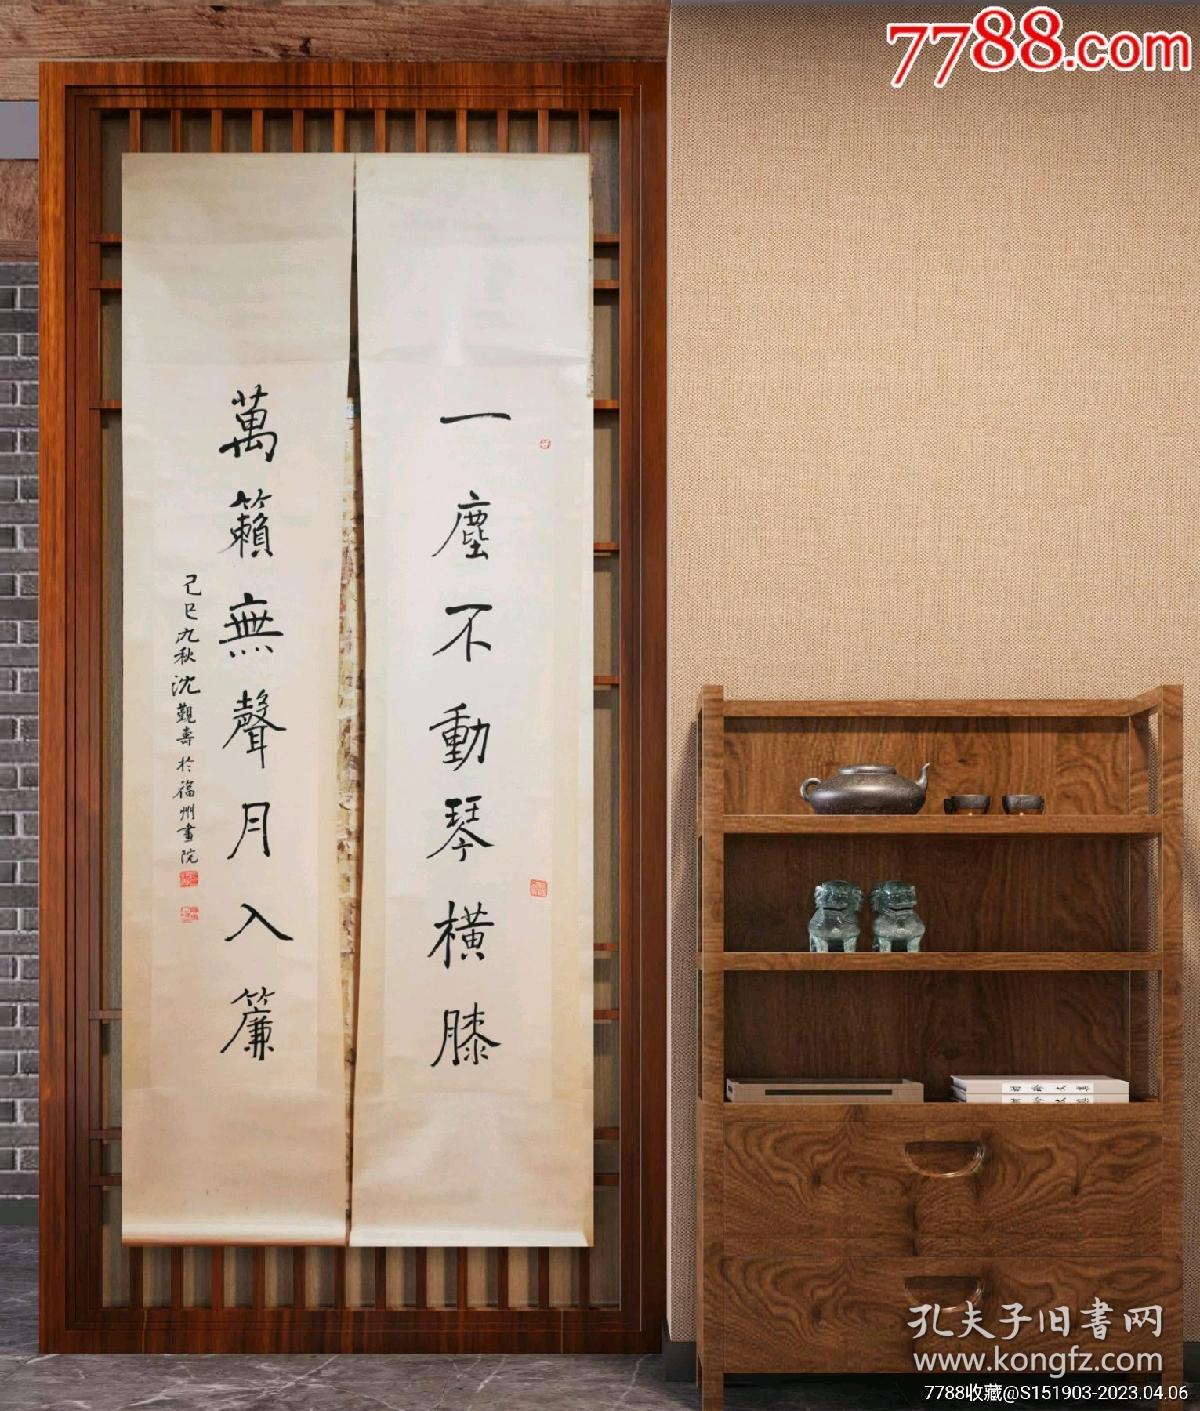 7788.com
一塵不動琴橫膝
萬籟無聲月入簾
己巳九秋沈觀壽於福州畫院
孔夫子旧书网
www.kongfz.com
7788收藏@S151903-2023.04.06